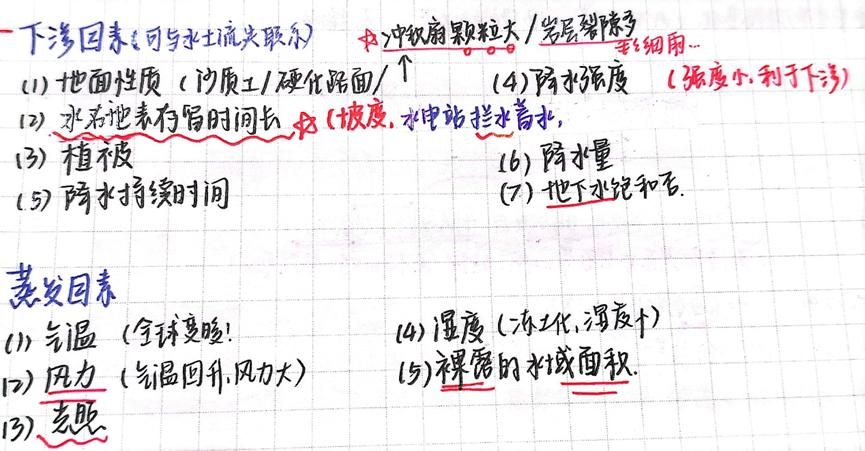 下渗因素(可与水土流失联系) ☆冲积扇颗粒大/岩层裂隙多
毛毛细雨...
(1) 地面性质 (沙质土/硬化路面/↑ (4) 降水强度 (强度小,利于下渗)
(2) 水在地表存留时间长 ☆(坡度,水电站拦水蓄水,
(3) 植被 (6) 降水量
(5) 降水持续时间 (7) 地下水饱和否.
蒸发因素
(1) 气温 (全球变暖! (4) 湿度 (冻土化,湿度个)
(2) 风力 (气温回升,风力大) (5) 裸露的水域面积.
(3) 光照